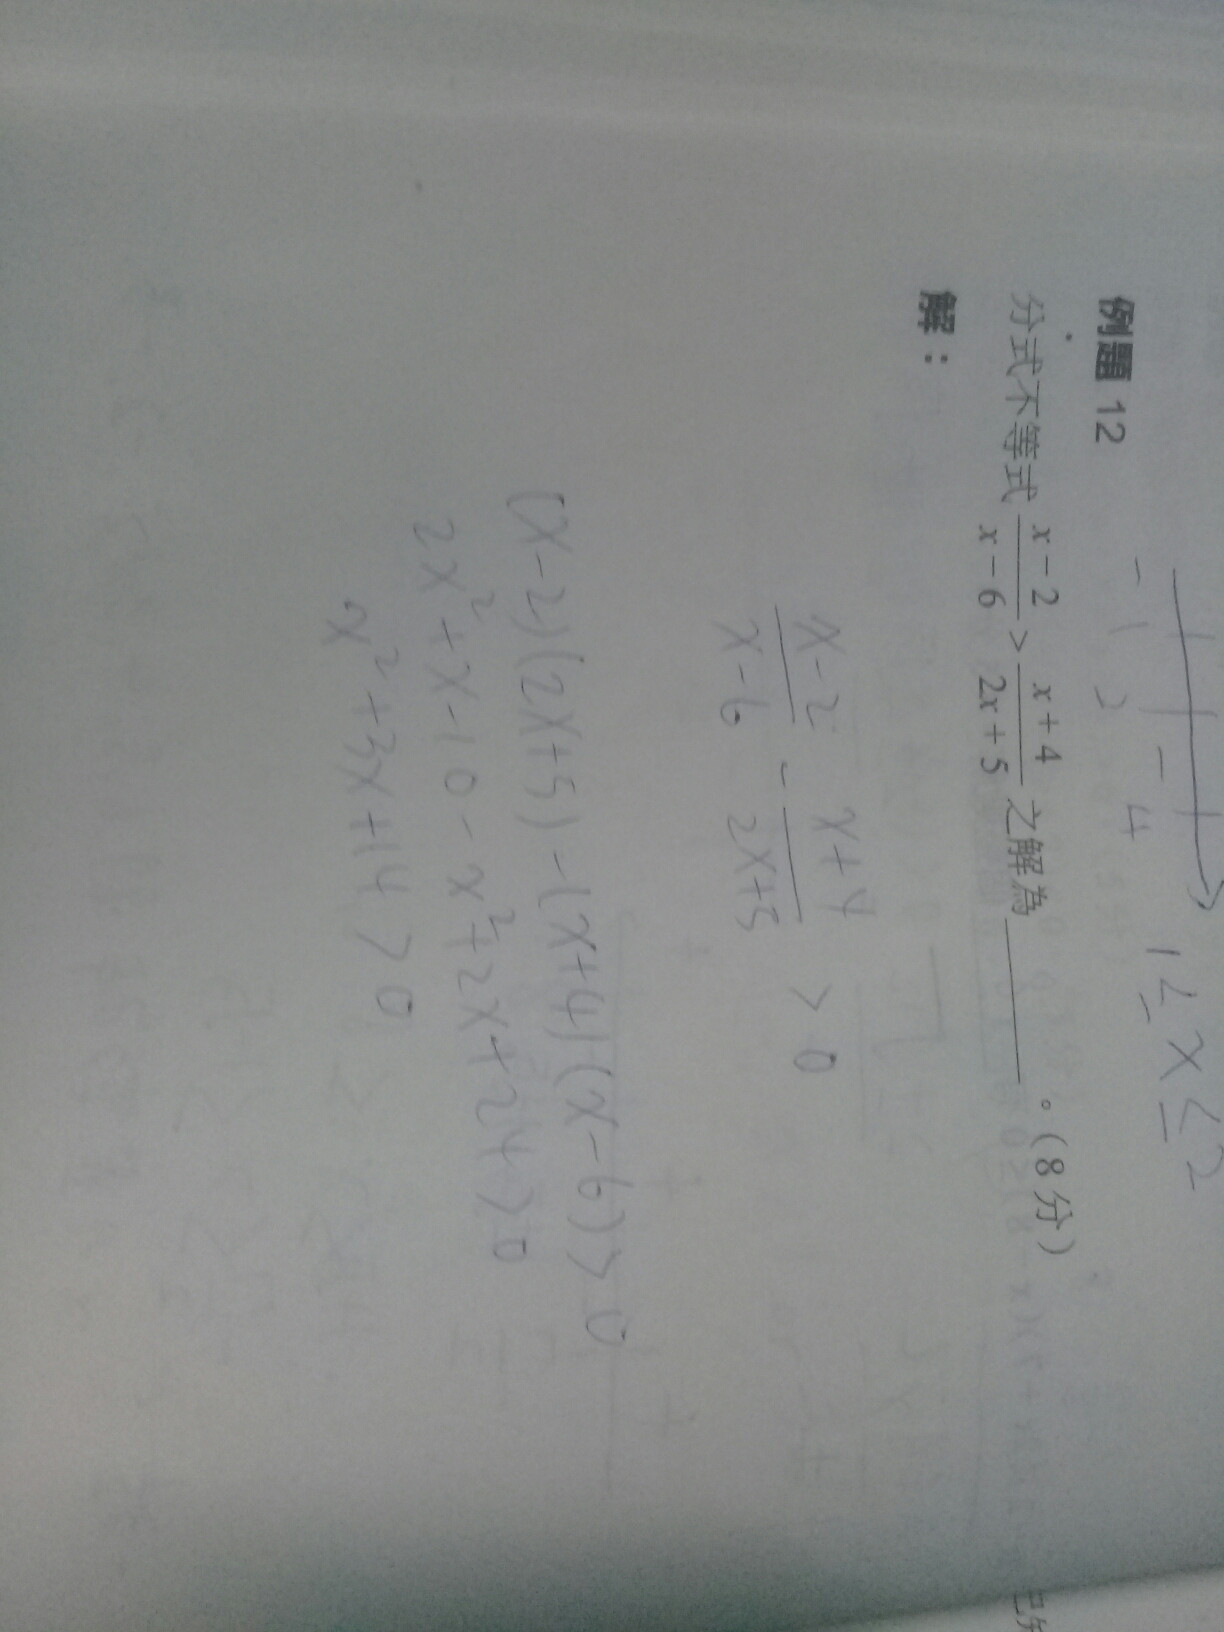 1 ≤ x ≤ 2
-1 2 - 4
例題 12
分式不等式 \frac{x-2}{x-6} > \frac{x+4}{2x+5} 之解為______。(8分)
解：
\frac{x-2}{x-6} - \frac{x+4}{2x+5} > 0
(x-2)(2x+5)-(x+4)(x-6)>0
2x²+x-10-x²+2x+24>0
x²+3x+14>0